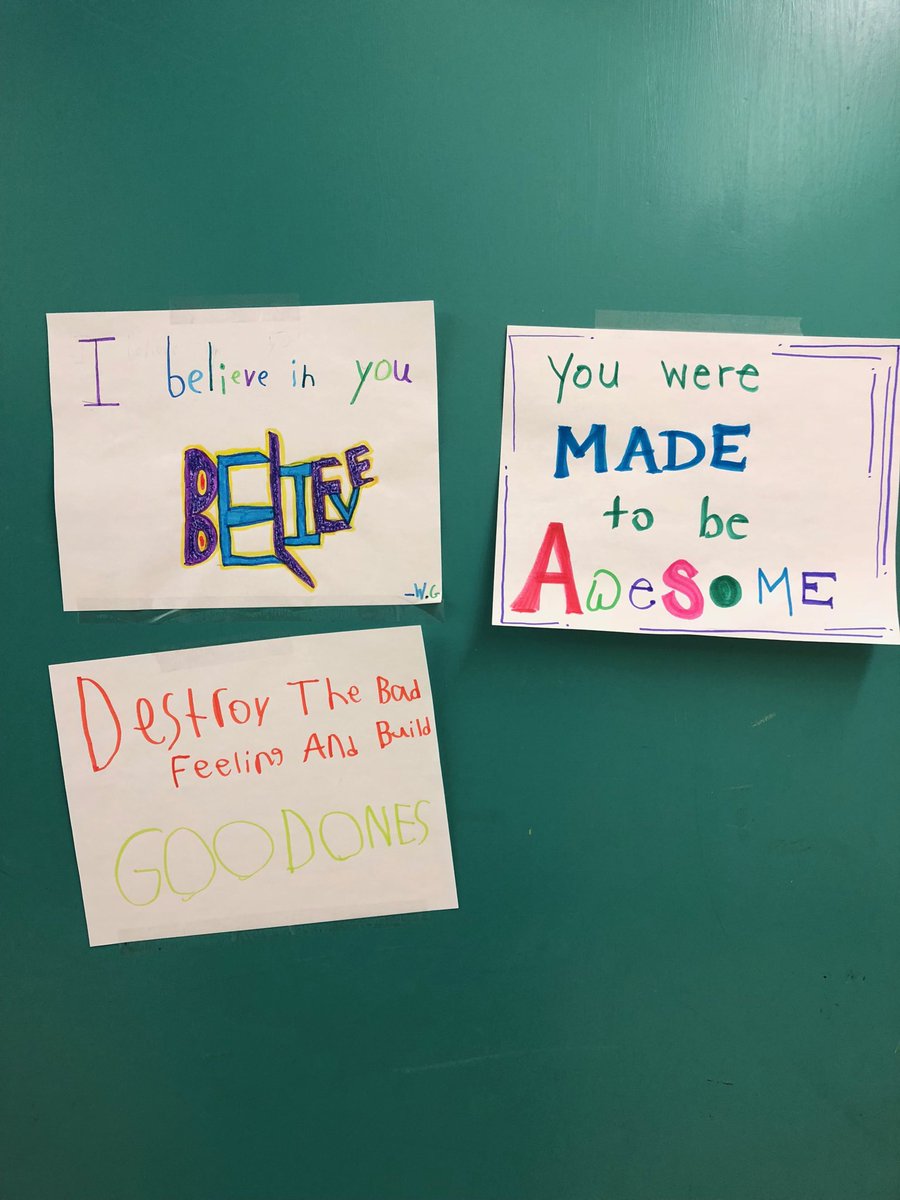 I believe in you
BELIEVE
-W.G
You were
MADE
to be
AWeSOME
Destroy The Bad
Feeling And Build
GOOD ONES